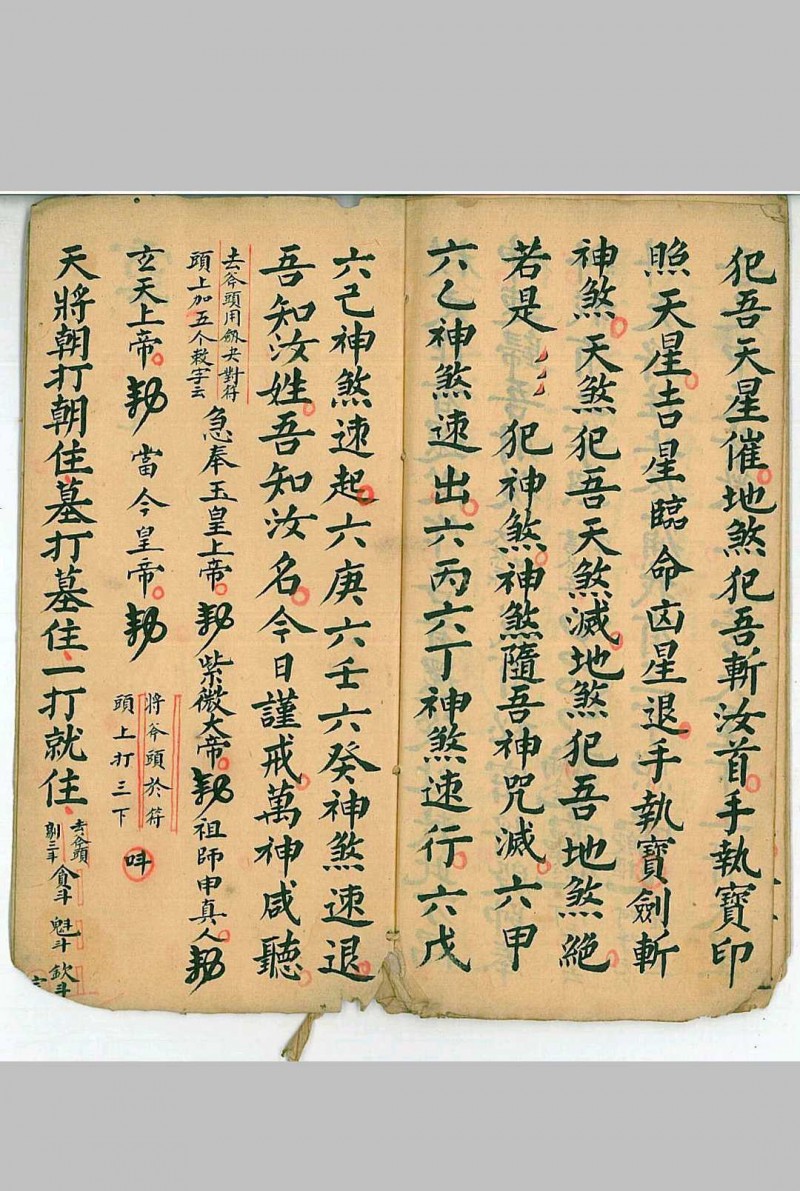 犯吾天星催。地煞犯吾斬汝首。手執寶印
照天星。吉星臨命凶星退。手執寶劍斬
神煞。天煞犯吾天煞滅。地煞犯吾地煞絕。
若是 犯神煞。神煞隨吾神咒滅。六甲
六乙神煞速出。六丙六丁神煞速行。六戊
六己神煞速起。六庚六壬六癸神煞速退。
吾知汝姓。吾知汝名。今日謹戒。萬神咸聽。
去斧頭用劔尖對符
頭上加五个殺字云
急奉玉皇上帝。勅紫微大帝。勅祖師申真人。勅
玄天上帝。勅當今皇帝。勅
將斧頭於符
頭上打三下
吽
天將朝打朝住。墓打墓住。一打就住。
去斧頭
劃三斗
貪斗 魁斗